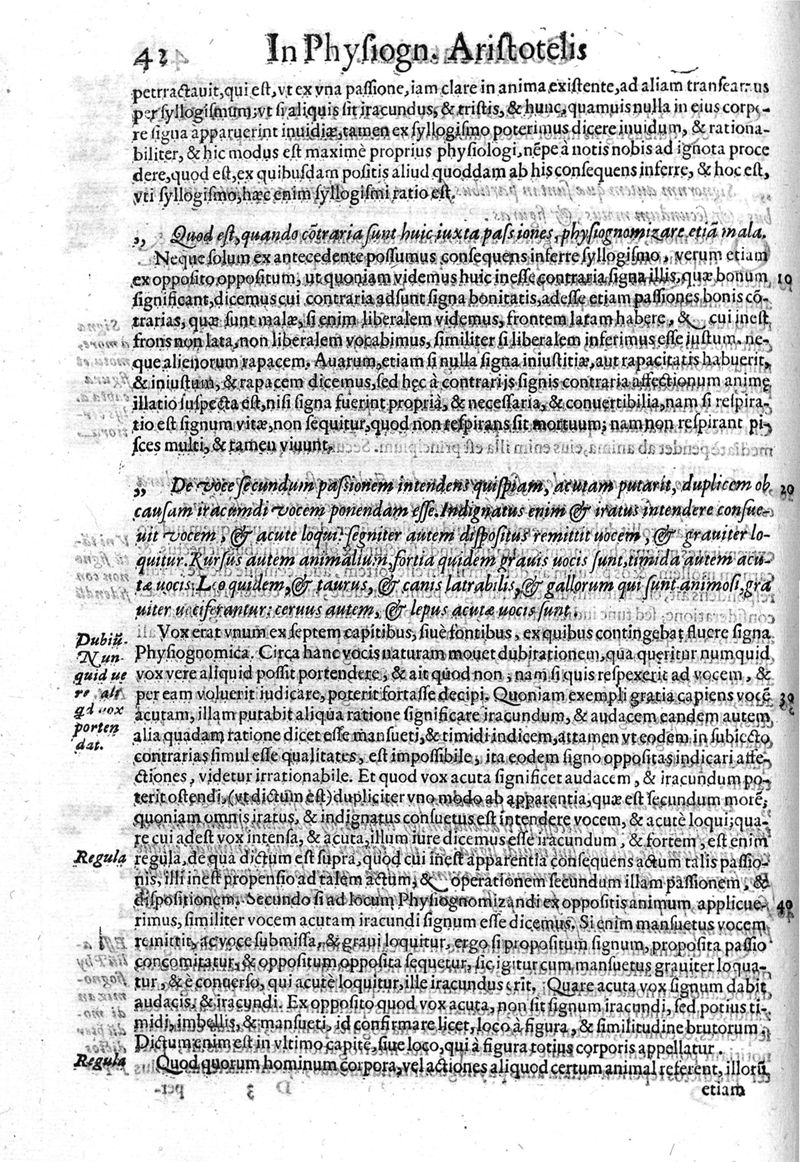 42 In Physiogn. Aristotelis
petrractauit, qui est, vt ex vna passione, iam clare in anima existente, ad aliam transeamus
per syllogismum; vt si aliquis sit iracundus, & tristis, & hunc, quamuis nulla in eius corpo-
re signa apparuerint inuidiæ, tamen ex syllogismo poterimus dicere inuidum, & rationa-
biliter, & hic modus est maximè proprius physiologi, nẽpè à notis nobis ad ignota proce
dere, quod est, ex quibusdam positis aliud quoddam ab his consequens inferre, & hoc est,
vti syllogismo, hæc enim syllogismi ratio est.
„ Quod est, quando cõtraria sunt huic iuxta passiones, physiognomizare etiã mala.
Neque solum ex antecedente possumus consequens inferre syllogismo, verum etiam
ex opposito oppositum, ut quoniam videmus huic inesse contraria signa illis, quæ bonum 10
significant, dicemus cui contraria adsunt signa bonitatis, adesse etiam passiones bonis cõ-
trarias, quæ sunt malæ, si enim liberalem videmus, frontem latam habere, & cui inest
frons non lata, non liberalem vocabimus, similiter si liberalem inferimus esse iustum, ne-
que alienorum rapacem, Auarum, etiam si nulla signa iniustitiæ, aut rapacitatis habuerit,
& iniustum, & rapacem dicemus, sed hęc à contrarijs signis contraria affectionum animę
illatio suspecta est, nisi signa fuerint propria, & necessaria, & conuertibilia, nam si respira-
tio est signum vitæ, non sequitur, quod non respirans sit mortuum; nam non respirant pi-
sces multi, & tamen viuunt.
„ De voce secundum passionem intendens quispiam, acutam putarit, duplicem ob 20
causam iracumdi vocem ponendam esse. Indignatus enim & iratus intendere consue-
uit vocem, & acute loqui: segniter autem dispositus remittit uocem, & grauiter lo-
quitur. Rursus autem animalium, fortia quidem grauis uocis sunt, timida autem acu-
tæ uocis. Leo quidem, & taurus, & canis latrabilis, & gallorum qui sunt animosi, gra
uiter uociferantur: ceruus autem, & lepus acutæ uocis sunt.
Dubiũ. Vox erat vnum ex septem capitibus, siuè fontibus, ex quibus contingebat fluere signa
Nun- Physiognomica. Circa hanc vocis naturam mouet dubitationem, qua queritur numquid
quid ue vox vere aliquid possit portendere, & ait quod non, nam si quis respexerit ad vocem, &
re ali per eam voluerit iudicare, poterit fortasse decipi. Quoniam exempli gratia capiens vocẽ 30
qd vox acutam, illam putabit aliqua ratione significare iracundum, & audacem eandem autem
porten alia quadam ratione dicet esse mansueti, & timidi indicem, attamen vt eodem in subiecto
dat. contrarias simul esse qualitates, est impossibile, ita eodem signo oppositas indicari affe-
ctiones, videtur irrationabile. Et quod vox acuta significet audacem, & iracundum po-
terit ostendi, (vt dictum est) dupliciter vno modo ab apparentia, quæ est secundum morẽ,
quoniam omnis iratus, & indignatus consuetus est intendere vocem, & acutè loqui; qua-
re cui adest vox intensa, & acuta, illum iure dicemus esse iracundum, & fortem, est enim
Regula regula, de qua dictum est supra, quod cui inest apparentia consequens actum talis passio-
nis, illi inest propensio ad talem actum, & operationem secundum illam passionem, &
dispositionem. Secundo si ad locum Physiognomizandi ex oppositis animum applicue- 40
rimus, similiter vocem acutam iracundi signum esse dicemus. Si enim mansuetus vocem
remittit, ac voce submissa, & graui loquitur, ergo si propositum signum, proposita passio
concomitatur, & oppositum opposita sequetur, sic igitur cum mansuetus grauiter loqua-
tur, & e conuerso, qui acutè loquitur, ille iracundus erit. Quare acuta vox signum dabit
audacis, & iracundi. Ex opposito quod vox acuta, non sit signum iracundi, sed potius ti-
midi, imbellis, & mansueti, id confirmare licet, loco à figura, & similitudine brutorum;
Dictum enim est in vltimo capite, siue loco, qui à figura totius corporis appellatur.
Regula Quod quorum hominum corpora, vel actiones aliquod certum animal referent, illorũ
etiam